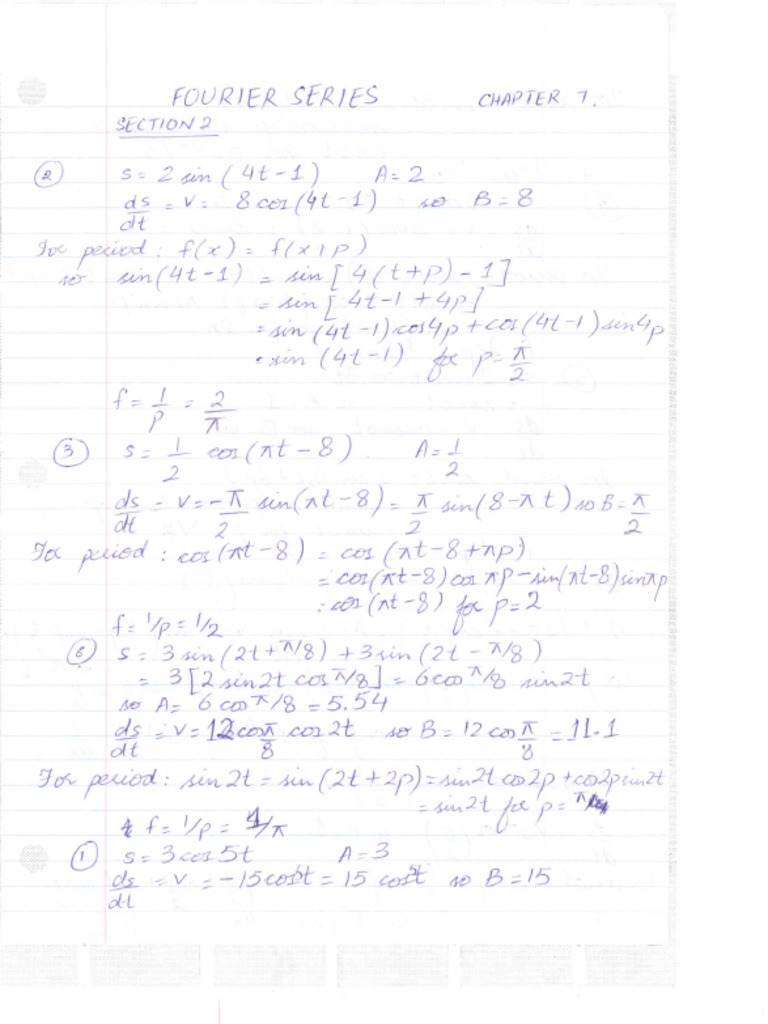 FOURIER SERIES CHAPTER 7.
SECTION 2
② s = 2 sin (4t-1) A = 2
ds/dt = v = 8 cos (4t-1) so B = 8
For period : f(x) = f(x+p)
so sin(4t-1) = sin [4(t+p) - 1]
= sin [4t-1 + 4p]
= sin (4t-1) cos4p + cos (4t-1) sin4p
= sin (4t-1) for p = π/2
f = 1/p = 2/π
③ s = 1/2 cos (πt - 8). A = 1/2
ds/dt = v = -π/2 sin(πt-8) = π/2 sin(8-πt) so B = π/2
For period : cos (πt-8) = cos (πt-8+πp)
= cos(πt-8) cos πp - sin(πt-8) sin πp
: cos (πt-8) for p = 2
f = 1/p = 1/2
⑥ s = 3 sin (2t + π/8) + 3 sin (2t - π/8)
= 3 [2 sin2t cos π/8] = 6 cos π/8 sin2t
so A = 6 cos π/8 = 5.54
ds/dt = v = 12 cos π/8 cos 2t so B = 12 cos π/8 = 11.1
For period : sin 2t = sin (2t + 2p) = sin2t cos2p + cos2p sin2t
= sin2t for p = π
f = 1/p = 1/π
① s = 3 cos 5t A = 3
ds/dt = v = -15 cos5t = 15 cos5t so B = 15